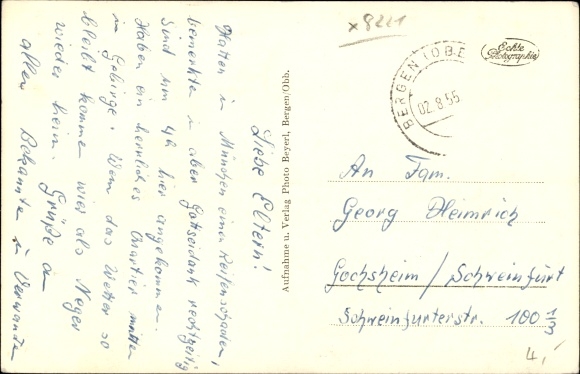 x 8221
Echte
Photographie
BERGEN (OBB
02.8.55
Liebe Eltern!
Hatten in München einen Reifenschaden,
bemerkten in aber Gottseidank rechtzeitig
Sind um 4h hier angekommen.
Haben ein herrliches Quartier mitten
in Gebirge. Wenn das Wetter so
bleibt kommen wir als Neger
wieder heim. Grüße an
allen Bekannte u. Verwande
Aufnahme u. Verlag Photo Beyerl, Bergen/Obb.
An Fam.
Georg Heimrich
Gochsheim / Schweinfurt
Schweinfurterstr. 100 1/3
4,-